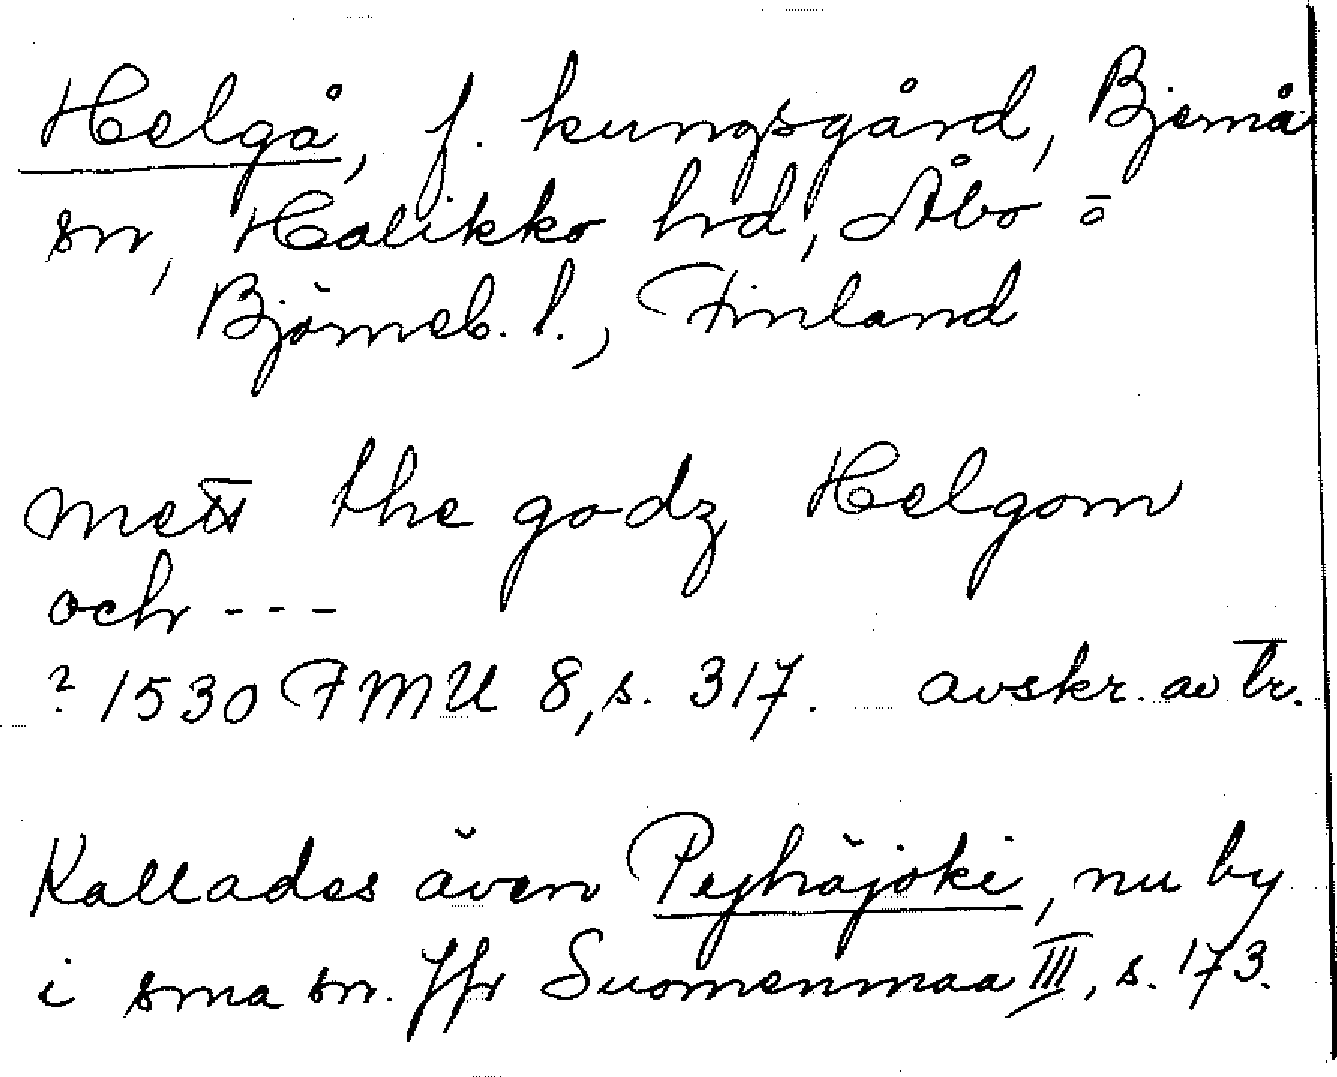 Helgå, f. kungsgård, Bjernå
sn, Halikko hrd, Åbo =
Björneb. l., Finland
mett the godz Helgom
och ---
? 1530 FMU 8, s. 317. avskr. av tr.
Kallades även Pyhäjoki, nu by
i sma sn. Jfr Suomenmaa III, s. 173.